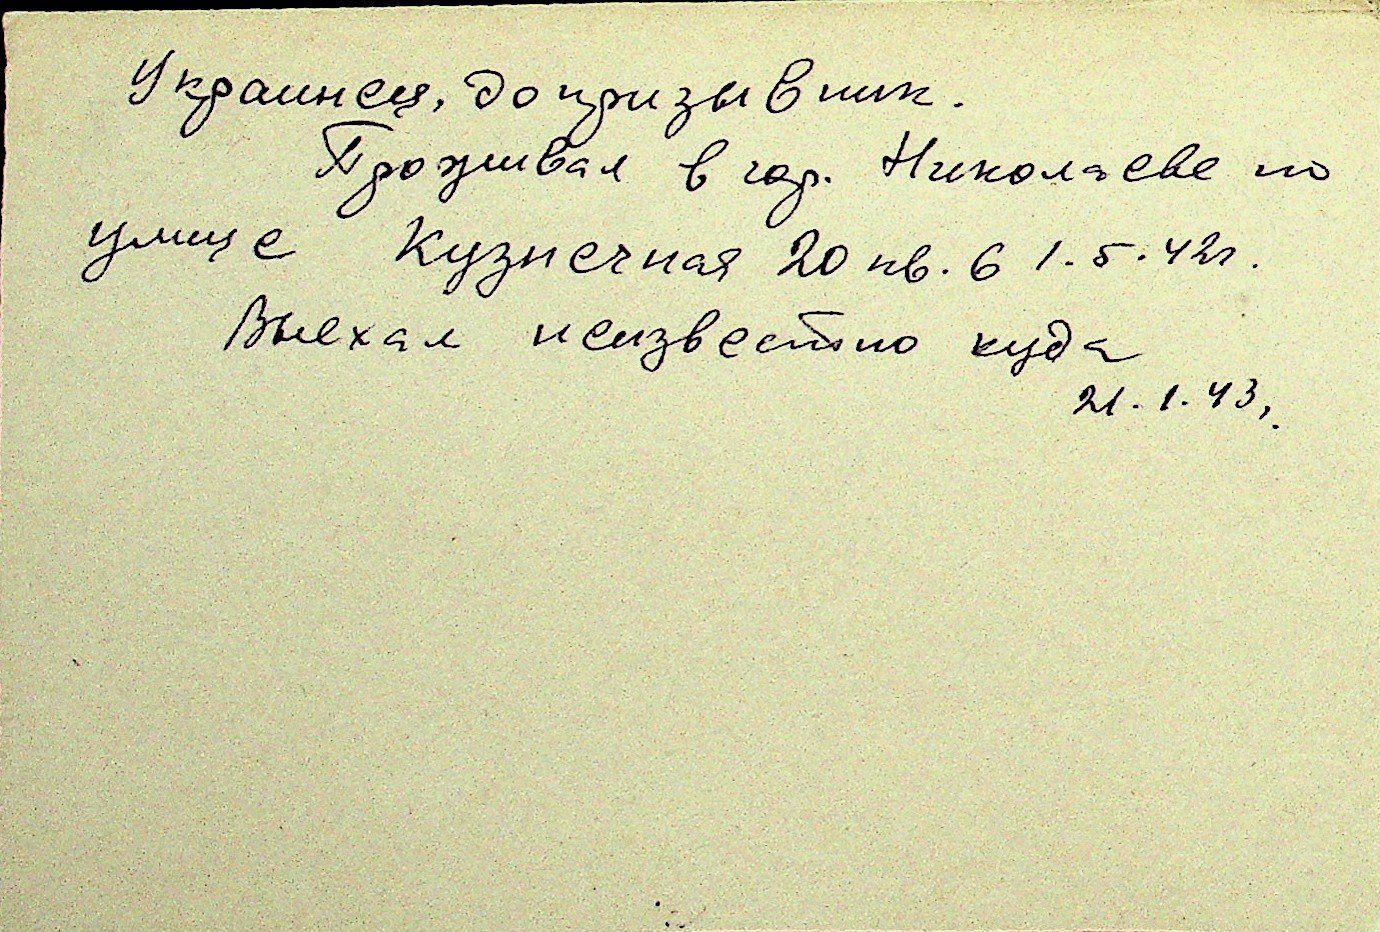 Украинец, допризывник.
Проживал в гор. Николаеве по
улице Кузнечная 20 кв. 6 1.5.42г.
Выехал неизвестно куда
21.1.43.